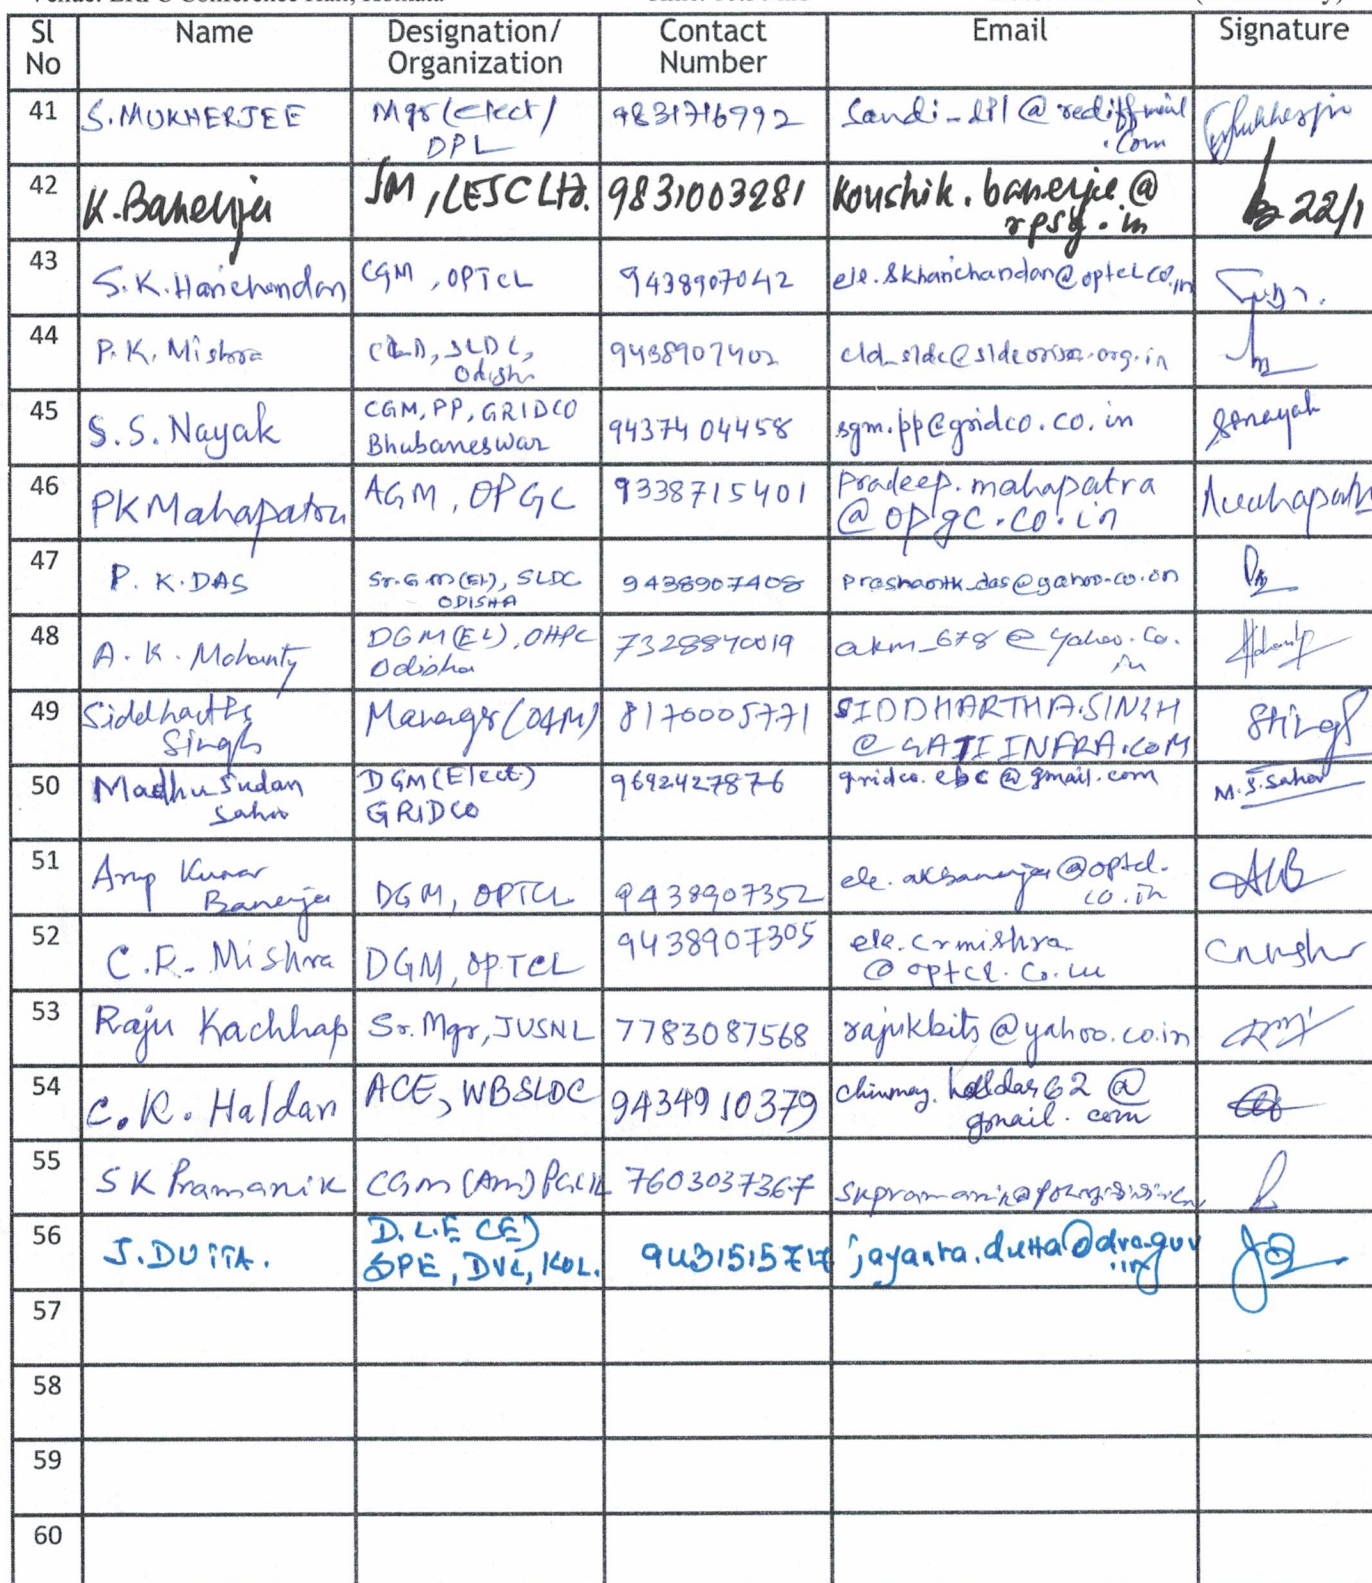 Sl No
Name
Designation/ Organization
Contact Number
Email
Signature
41
S. MUKHERJEE
Mgr (elect) /
DPL
9831716992
Sandi_dpl @ rediffmail
.com
42
K. Banerjee
CESC Ltd.
9831003281
Koushik.banerjee @
rpsg.in
22/1
43
S.K. Harichandan
CGM, OPTCL
9438907042
ele.skharichandan@optcl.co.in
44
P.K. Mishra
SLDC,
Odisha
9438907402
cld_sldc@sldcorissa.org.in
45
S.S. Nayak
CGM, PP, GRIDCO
Bhubaneswar
9437404458
sgm.pp@gridco.co.in
Ssnayak
46
PK Mahapatra
AGM, OPGC
9338715401
pradeep.mahapatra
@opgc.co.in
47
P. K. DAS
Sr.G.M(El), SLDC
ODISHA
9438907408
48
A. K. Mohanty
DGM (EL), OHPC
Odisha
akm_678@yahoo.co.
in
49
Siddhartha
Singh
Manager (O&M)
8170005771
SIDDHARTHA.SINGH
@GATIINFRA.COM
50
Madhu Sudan
Sahoo
DGM (Elect)
GRIDCO
9692427876
gridco.ebc@gmail.com
M.S.Sahoo
51
Arup Kumar
Banerjee
DGM, OPTCL
9438907352
ele.akbanerjee@optcl.
co.in
52
C.R. Mishra
DGM, OPTCL
9438907305
ele.crmishra
@optcl.co.in
53
Raju Kachhap
Sr. Mgr, JUSNL
7783087568
rajukbits@yahoo.co.in
54
C.K. Haldar
ACE, WBSLDC
9434910379
chinmay.haldar62@
gmail.com
55
S K Pramanik
CGM (AM) PGCIL
7603037367
56
J. DUTTA.
SPE, DVC, KOL.
jayanta.dutta@dvc.gov
.in
57
58
59
60